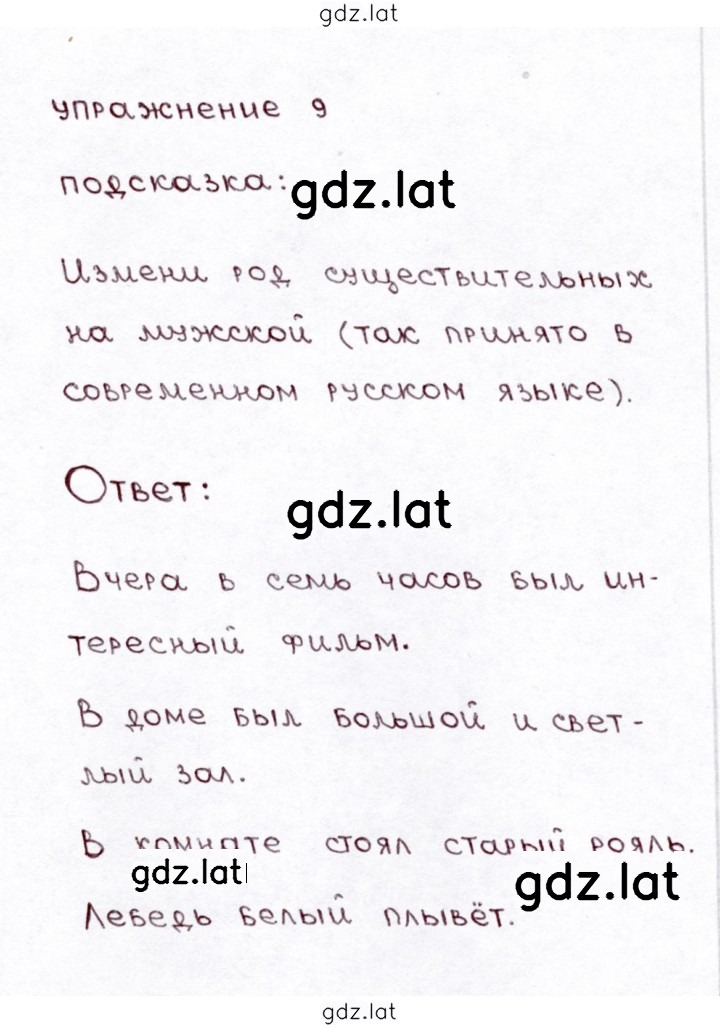 gdz.lat
упражнение 9
подсказка:
gdz.lat
Измени род существительных
на мужской (так принято в
современном русском языке).
Ответ:
gdz.lat
Вчера в семь часов был ин-
тересный фильм.
В доме был большой и свет-
лый зал.
В комнате стоял старый рояль.
gdz.lat
gdz.lat
Лебедь белый плывёт.
gdz.lat